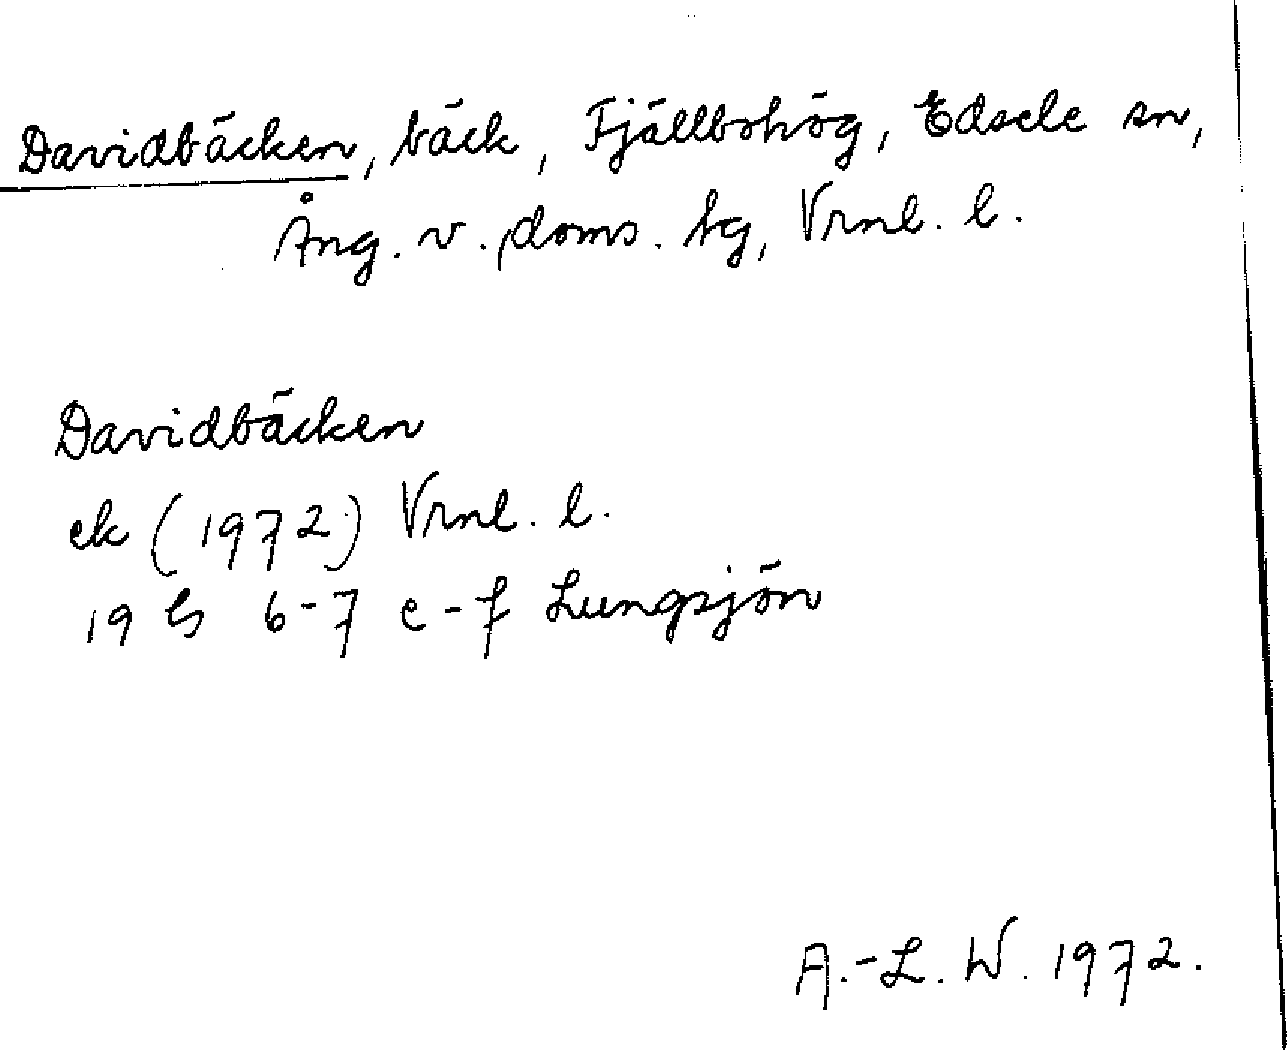 Davidbäcken, bäck, Fjällbohög, Edsele sn,
Ång. v. doms. tg, Vrnl. l.
Davidbäcken
ek (1972) Vrnl. l.
19 G 6-7 e-f Lungsjön
A.-L. W. 1972.